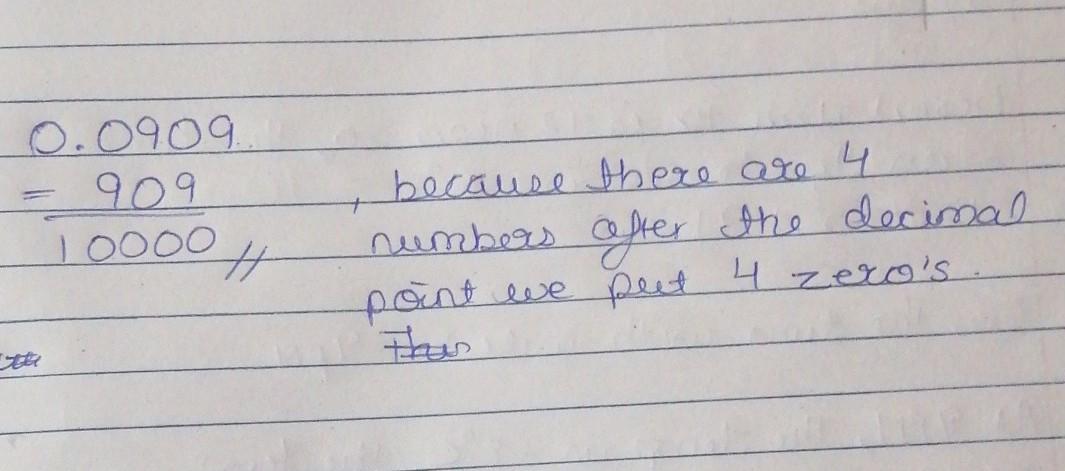 0.0909
= 909 , because there are 4
10000 // numbers after the decimal
point we put 4 zero's.
Thus